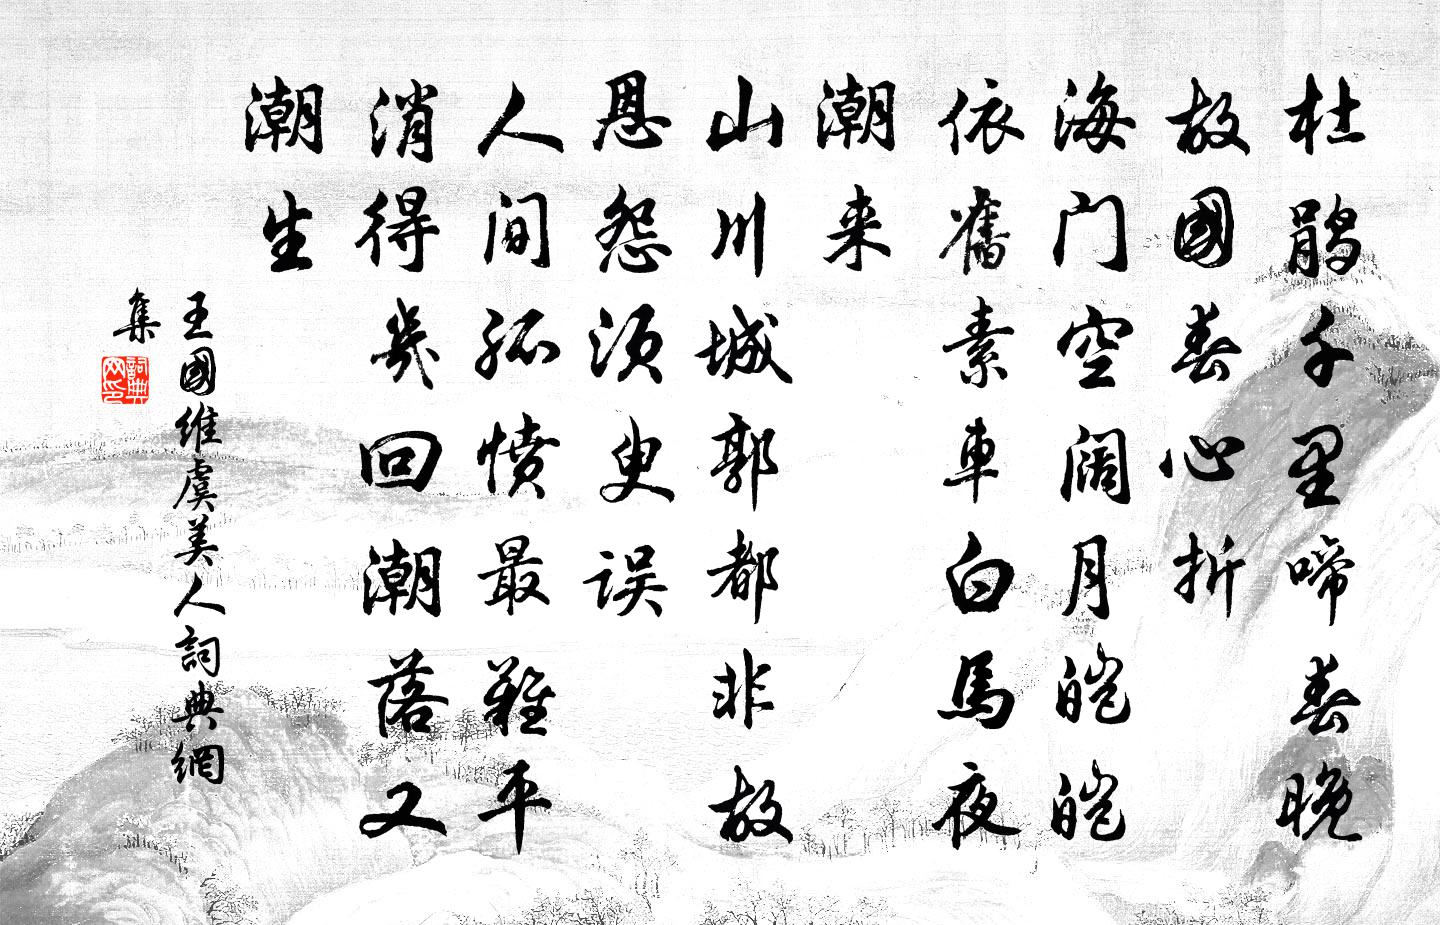 杜鹃千里啼春晚
故國春心折
海门空阔月皑皑
依舊素車白馬夜
潮来
山川城郭都非故
恩怨须臾误
人间孤愤最難平
消得幾回潮落又
潮生
王國維虞美人詞典網
集
詞典网印